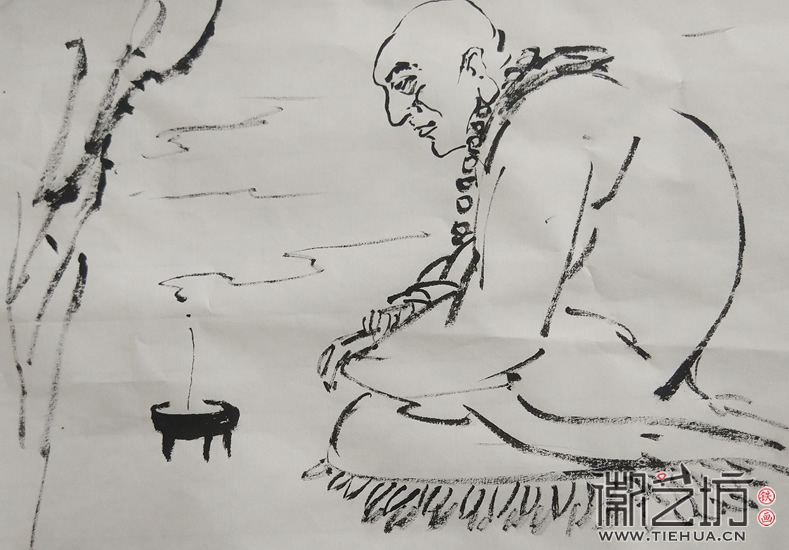 徽艺坊
铁画
WWW.TIEHUA.CN